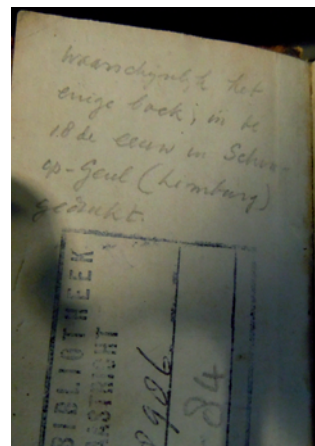 waarschijnlijk het
enige boek, in de
18de eeuw in Schin-
op-Geul (Limburg)
gedrukt.
BIBLIOTHEEK
MAASTRICHT
8986
84